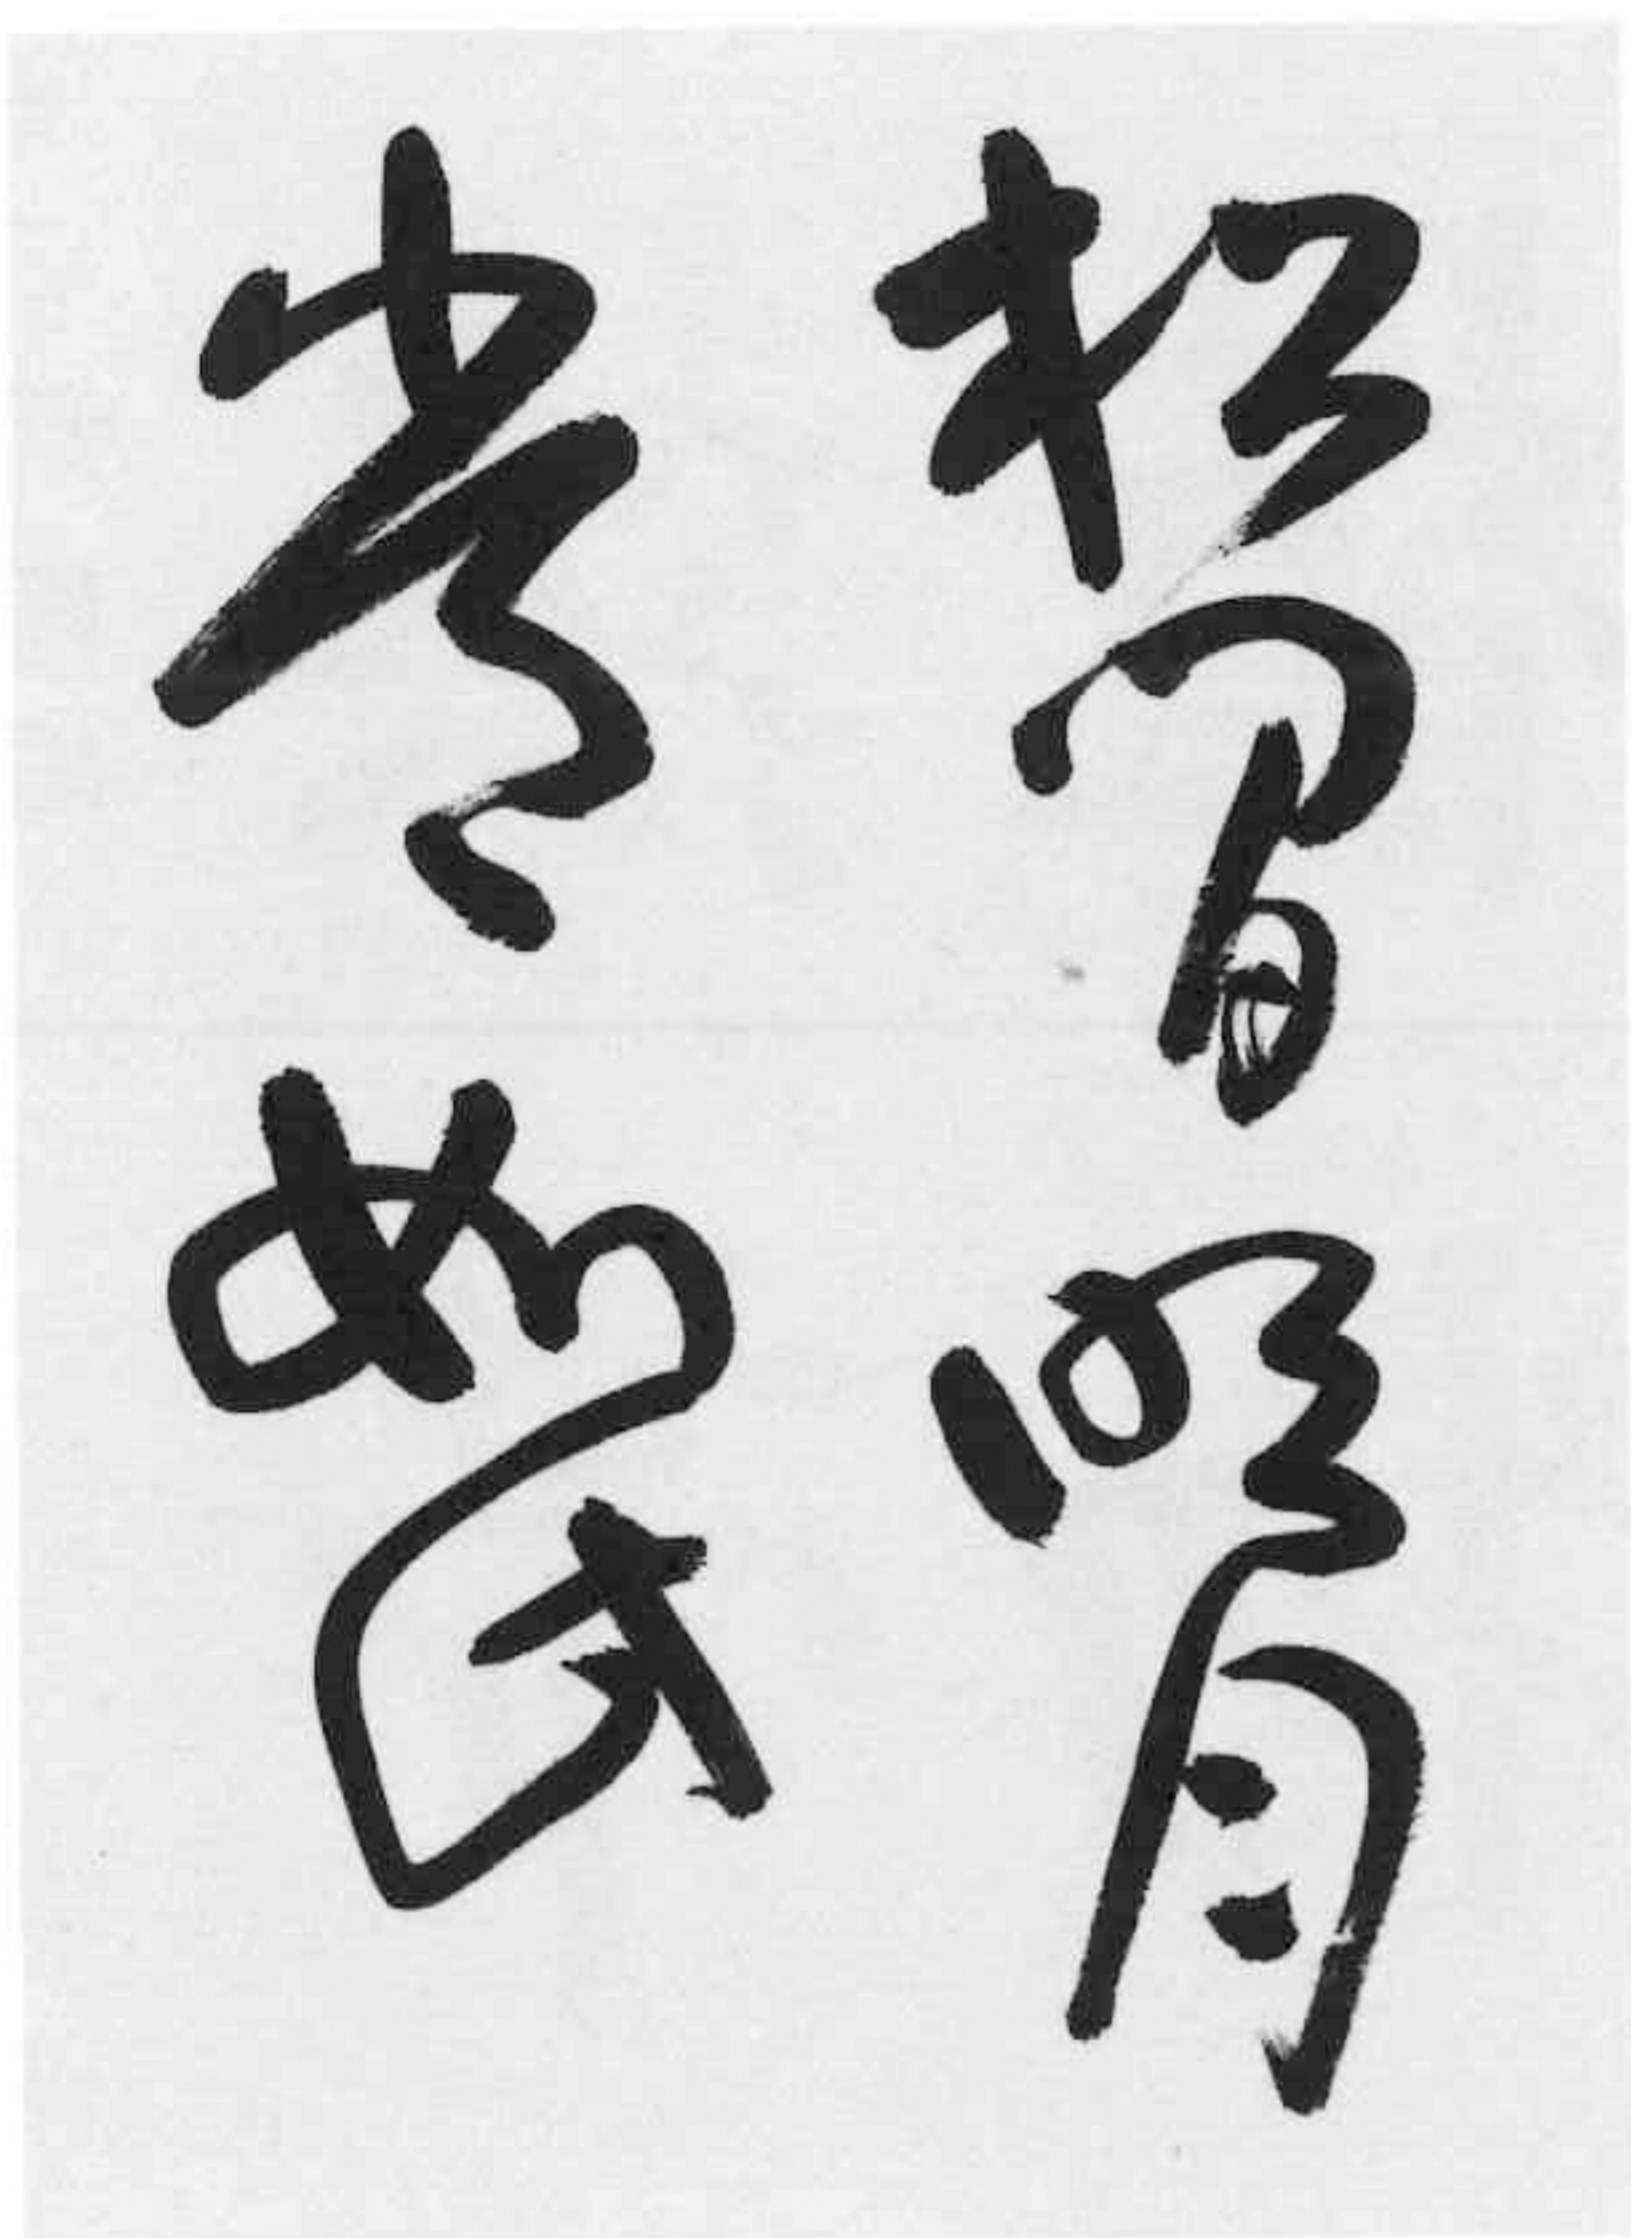 松間明月
常如此